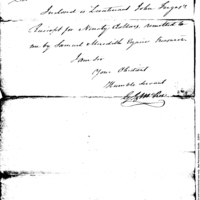 Sir
Inclosed is Lieutenant John Fergus's
Receipt for Ninety Dollars, remitted to
me by Samuel Meredith Esquire Treasurer.
I am Sir
Your Obedient
Humble Servant